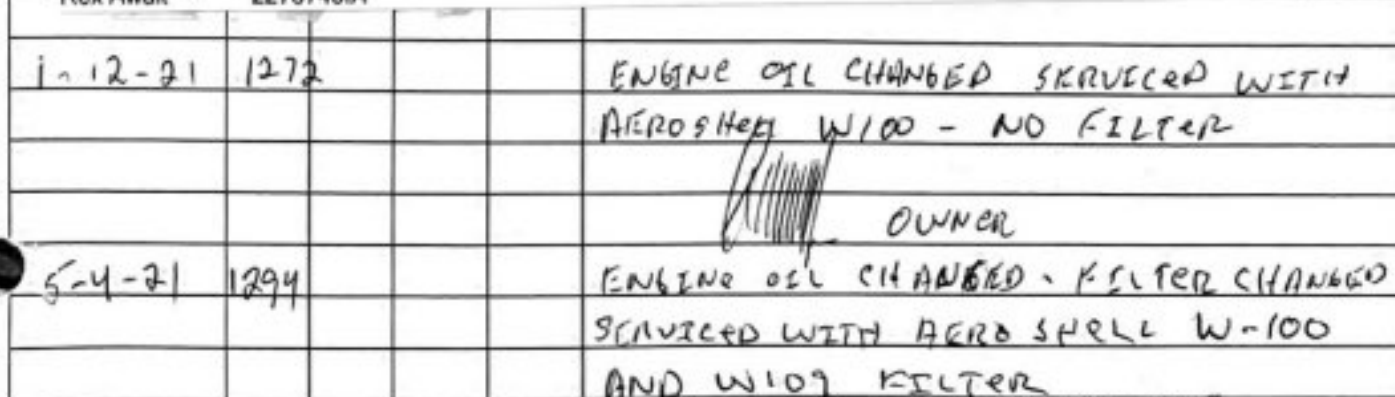 1-12-21 1272 ENGINE OIL CHANGED SERVICED WITH
AEROSHELL W100 - NO FILTER
OWNER
5-4-21 1294 ENGINE OIL CHANGED - FILTER CHANGED
SERVICED WITH AERO SHELL W-100
AND W109 FILTER